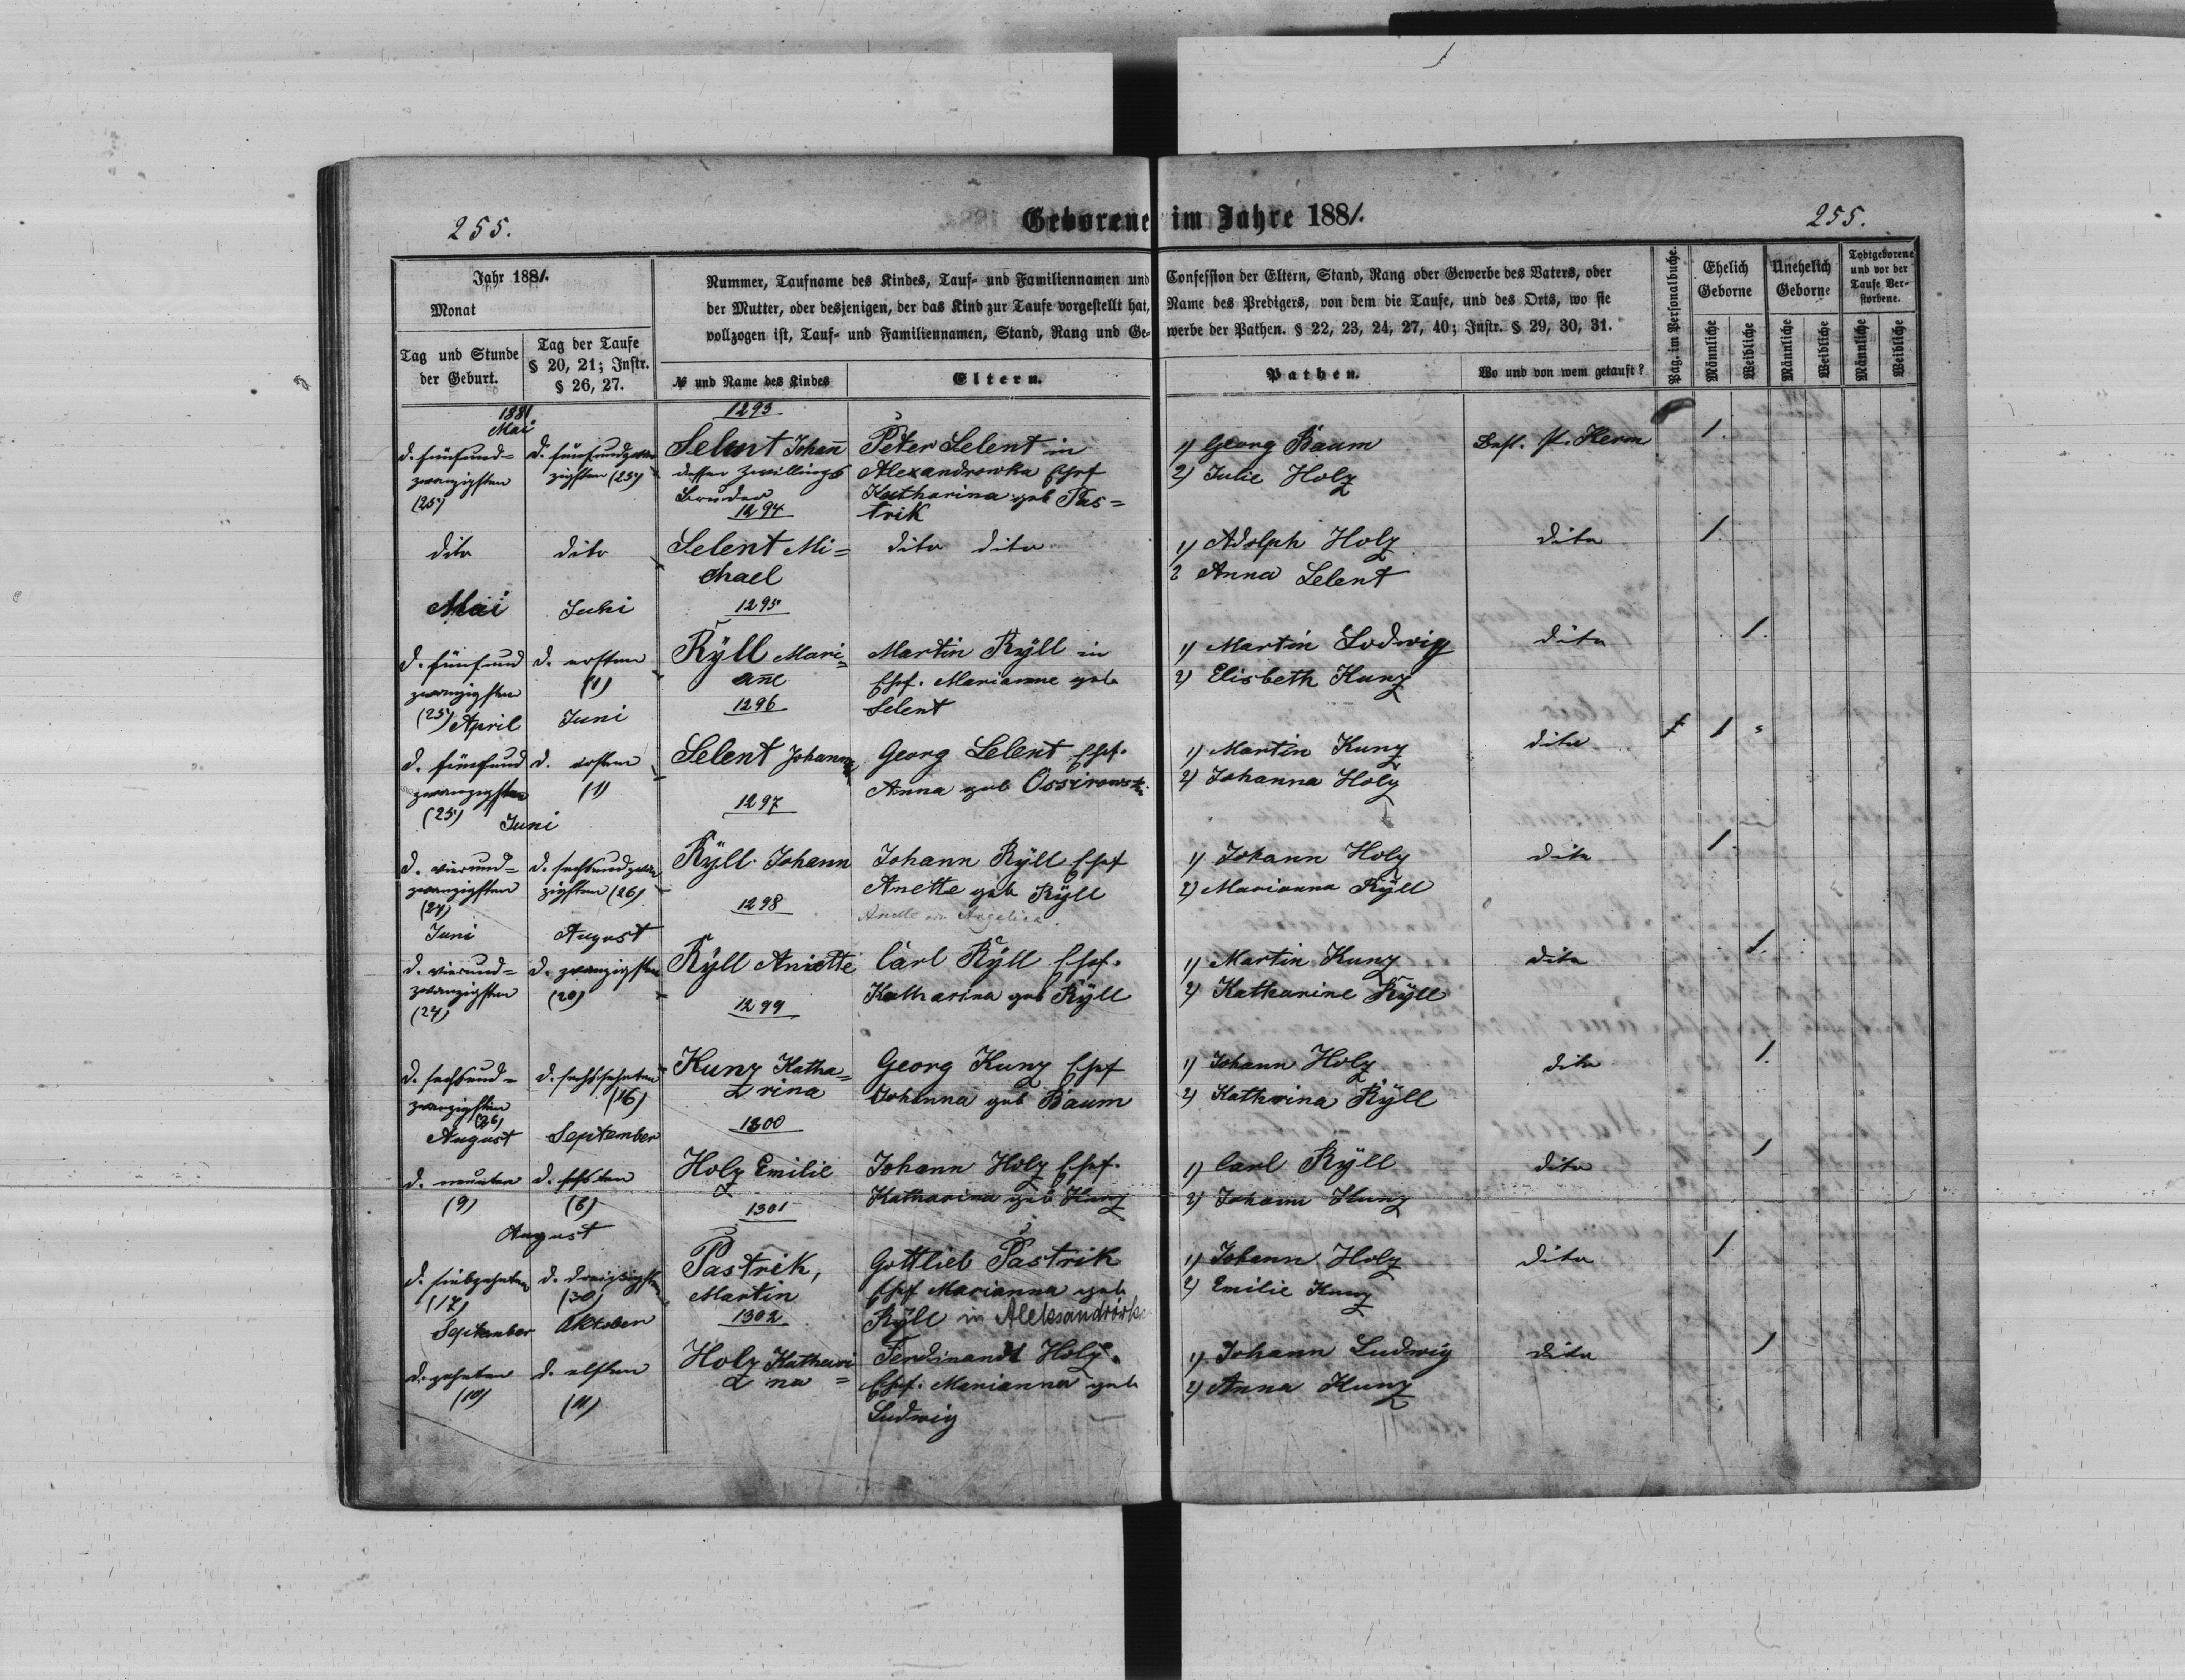 255.
Geborene im Jahre 1881.
255.
Jahr 1881.
Monat
Tag und Stunde der Geburt.
Tag der Taufe § 20, 21; Instr. § 26, 27.
Nummer, Taufname des Kindes, Tauf- und Familiennamen und Confession der Eltern, Stand, Rang oder Gewerbe des Vaters, oder
der Mutter, oder desjenigen, der das Kind zur Taufe vorgestellt hat, Name des Predigers, von dem die Taufe, und des Orts, wo sie
vollzogen ist, Tauf- und Familiennamen, Stand, Rang und Gewerbe der Pathen. § 22, 23, 24, 27, 40; Instr. § 29, 30, 31.
№ und Name des Kindes
Eltern.
Pathen.
Wo und von wem getauft?
Pag. im Personalbuche.
Ehelich Geborne
Unehelich Geborne
Todtgeborene und vor der Taufe Verstorbene.
Männliche
Weibliche
Männliche
Weibliche
Männliche
Weibliche
1881
Mai
1293
d. fünfund=
zwanzigsten
(25)
d. fünfundzwan
zigsten (25)
Selent Johan̅
dessen Zwillings
Bruder
Peter Selent in
Alexandrowka Ehef
Katharina geb Pas=
trik
1) Georg Baum
2) Julie Holz
Herm
1.
1294
dito
dito
Selent Mi=
chael
dito dito
1) Adolph Holz
2 Anna Selent
dito
1.
Mai
Juni
1295
d. fünfund
zwanzigsten
(25)
d. ersten
(1)
Ryll Mari=
an̅e
Martin Ryll in
Ehef. Marianne geb
Selent
1) Martin Lodwig
2) Elisbeth Kunz
dito
1.
April
Juni
1296
d. fünfund
zwanzigsten
(25)
d. ersten
(1)
Selent Johann
Georg Selent Ehef.
Anna geb Ossirowski
1) Martin Kunz
2) Johanna Holz
dito
1
1297
Juni
d. vierund=
zwanzigsten
(24)
d. sechsundzwan
zigsten (26)
Ryll Johann
Johann Ryll Ehef
Anette geb Ryll
1) Johann Holz
2) Marianna Ryll
dito
1.
1298
Anette Angelica
Juni
August
d. vierund=
zwanzigsten
(24)
d. zwanzigsten
(20)
Ryll Aniette
Carl Ryll Ehef.
Katharina geb Ryll
1) Martin Kunz
2) Katharine Ryll
dito
1.
1299
d. sechsund=
zwanzigsten
(26)
d. sechszehnten
(16)
Kunz Katha=
rina
Georg Kunz Ehef
Johanna geb Baum
1) Johann Holz
2) Katharina Ryll
dito
1.
August
September
1300
d. neunten
(9)
d. sechsten
(6)
Holz Emilie
Johann Holz Ehef.
Katharina geb Kunz
1) Carl Ryll
2) Johann Kunz
dito
1
1301
August
d. siebzehnten
(17)
d. dreissigsten
(30)
Pastrik,
Martin
Gottlieb Pastrik
Ehef Marianna geb
Ryll in Aleksandrówka
1) Johann Holz
2) Emilie Kunz
dito
1
September
Oktober
1302
d. zehnten
(10)
d. elften
(11)
Holz Kathari
na =
Ferdinandt Holz.
Ehef. Marianna geb
Ludwig
1) Johann Ludwig
2) Anna Kunz
dito
1